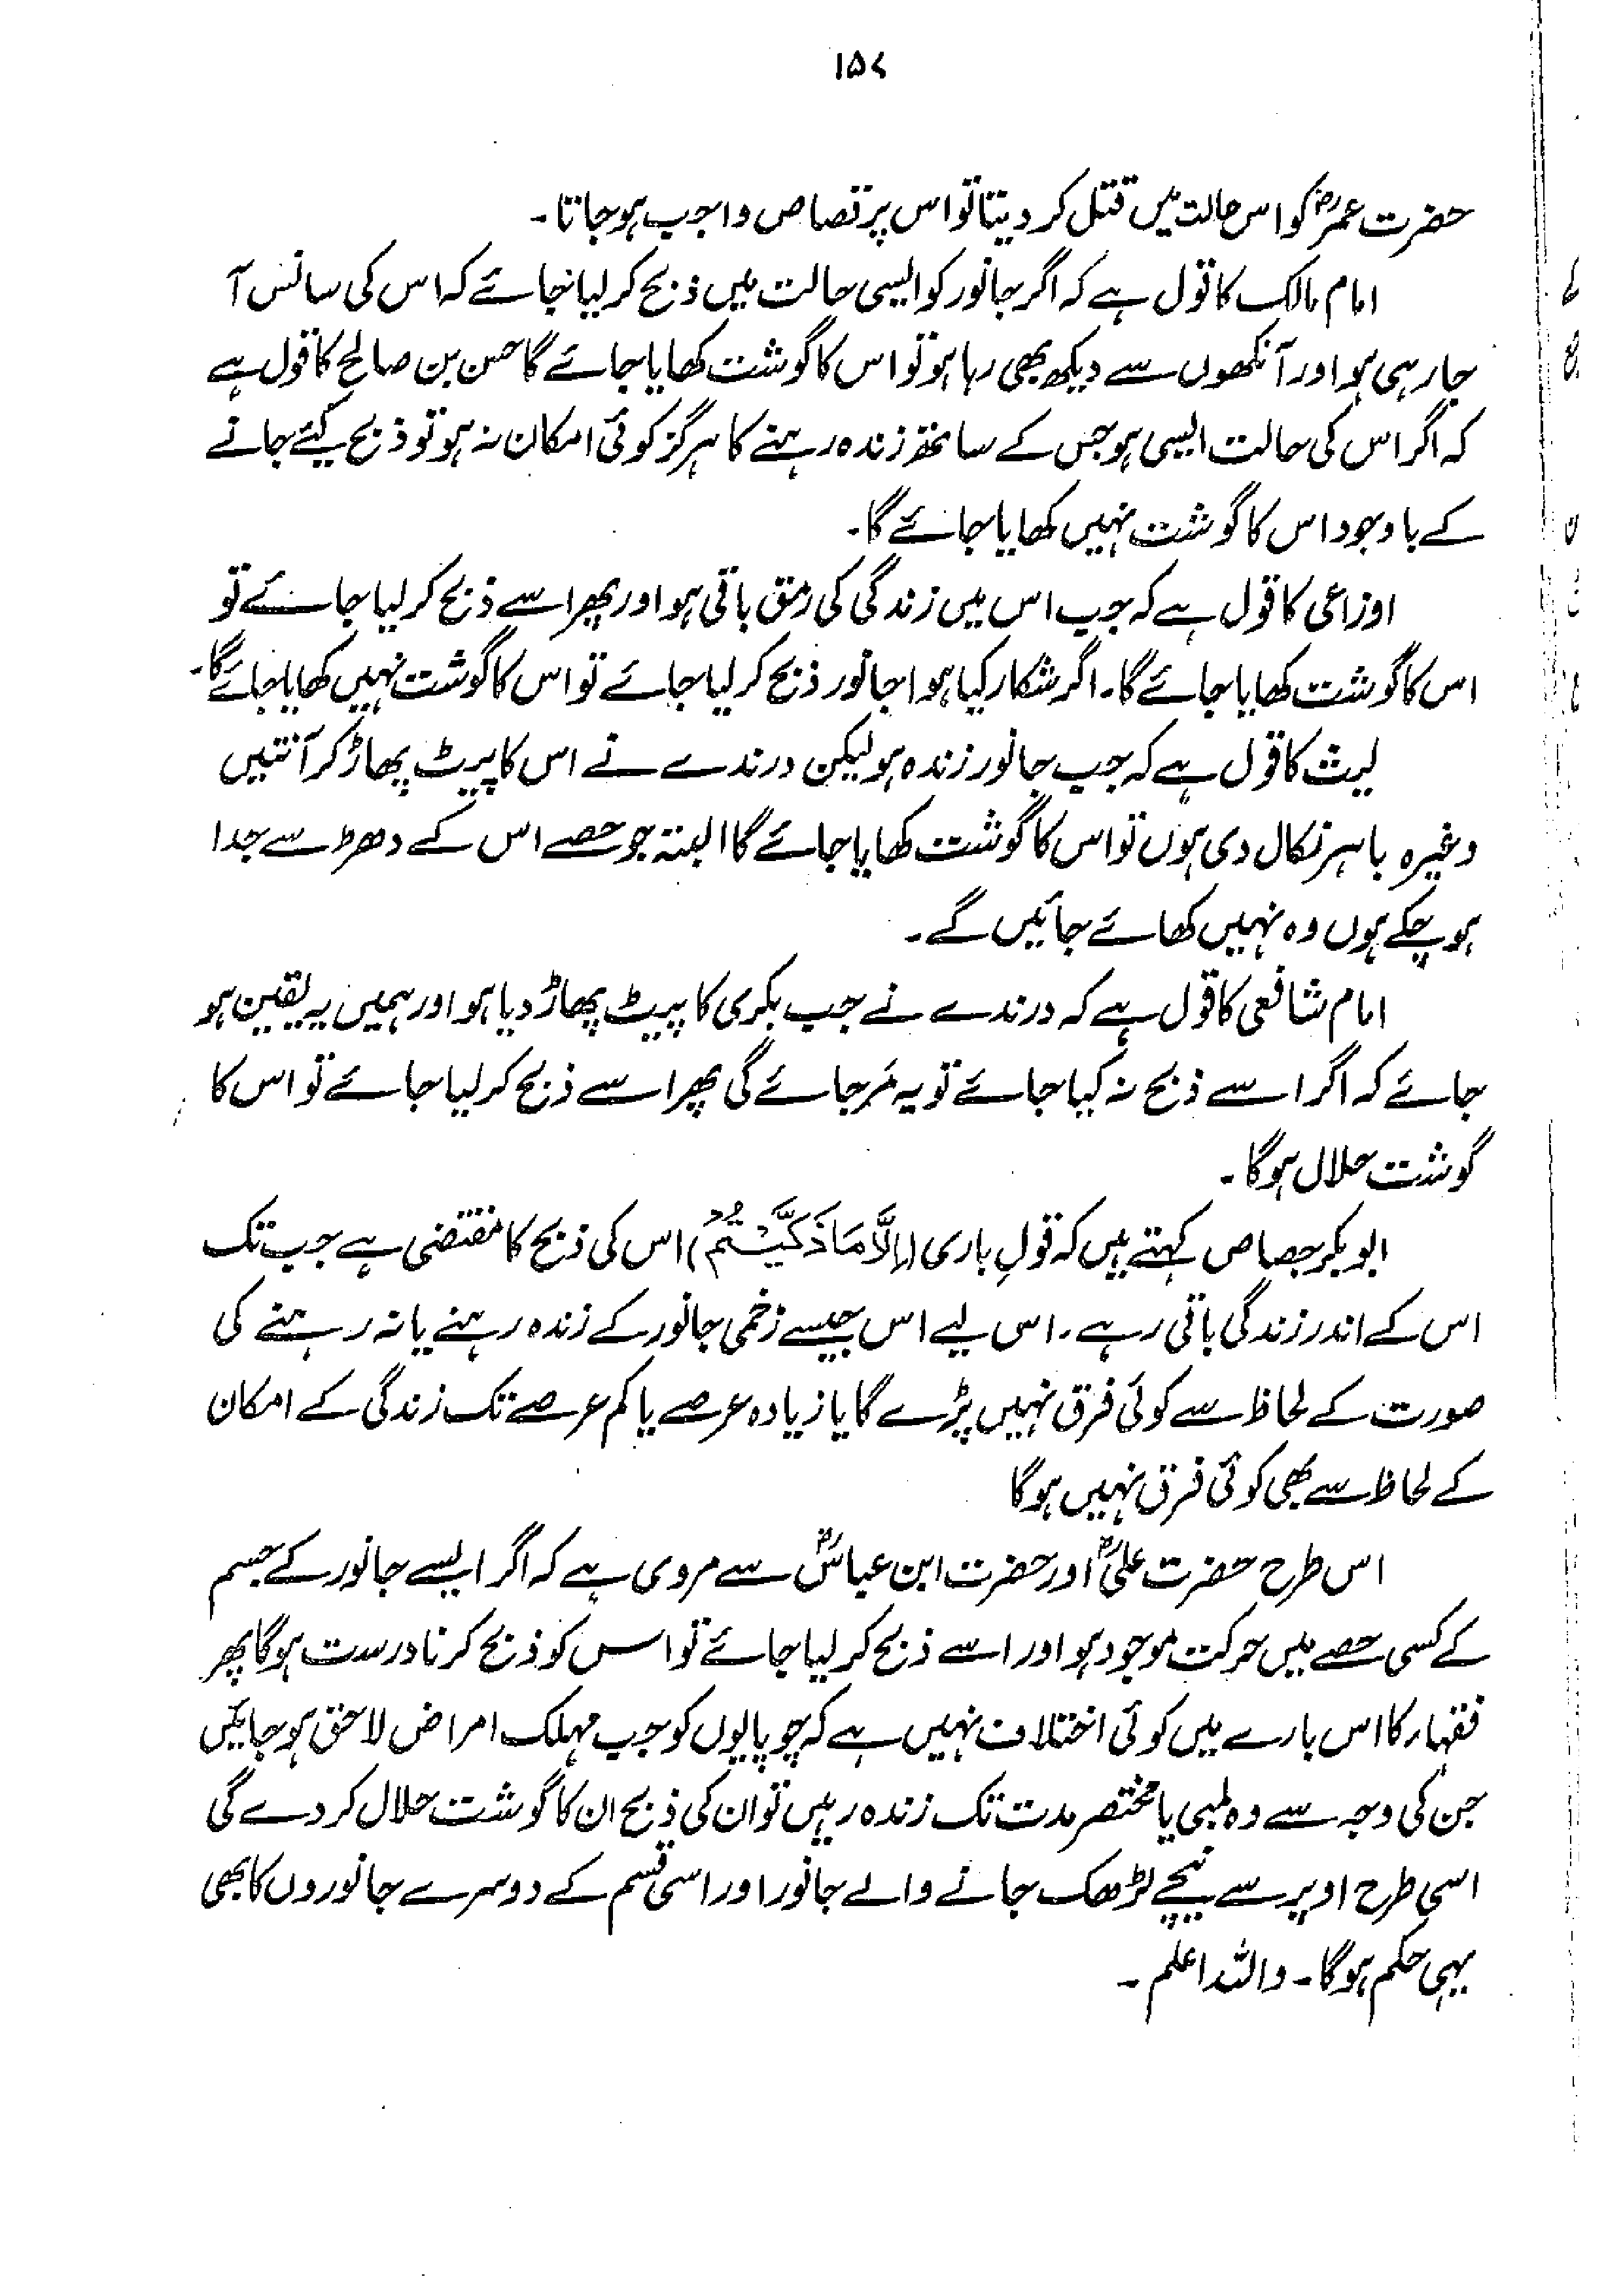 ۱۵۷
حضرت عمرؓ کو اس حالت میں قتل کر دیتا تو اس پر قصاص واجب ہو جاتا۔
امام مالک کا قول ہے کہ اگر جانور کو ایسی حالت میں ذبح کر لیا جائے کہ اس کی سانس آ
جا رہی ہو اور آنکھوں سے دیکھ بھی رہا ہو تو اس کا گوشت کھایا جائے گا حسن بن صالح کا قول ہے
کہ اگر اس کی حالت ایسی ہو جس کے ساتھ زندہ رہنے کا ہرگز کوئی امکان نہ ہو تو ذبح کیئے جانے
کے باوجود اس کا گوشت نہیں کھایا جائے گا۔
اوزاعی کا قول ہے کہ جب اس میں زندگی کی رمق باقی ہو اور پھر اسے ذبح کر لیا جائے تو
اس کا گوشت کھایا جائے گا۔ اگر شکار کیا ہوا جانور ذبح کر لیا جائے تو اس کا گوشت نہیں کھایا جائے گا۔
لیث کا قول ہے کہ جب جانور زندہ ہو لیکن درندے نے اس کا پیٹ پھاڑ کر آنتیں
وغیرہ باہر نکال دی ہوں تو اس کا گوشت کھایا جائے گا البتہ جو حصے اس کے دھڑ سے جدا
ہو چکے ہوں وہ نہیں کھائے جائیں گے۔
امام شافعی کا قول ہے کہ درندے نے جب بکری کا پیٹ پھاڑ دیا ہو اور ہمیں یہ یقین ہو
جائے کہ اگر اسے ذبح نہ کیا جائے تو یہ مر جائے گی پھر اسے ذبح کر لیا جائے تو اس کا
گوشت حلال ہو گا۔
ابو بکر جصاص کہتے ہیں کہ قولِ باری (اِلَّا مَا ذَكَّيْتُمْ) اس کی ذبح کا مقتضی ہے جب تک
اس کے اندر زندگی باقی رہے۔ اس لیے اس جیسے زخمی جانور کے زندہ رہنے یا نہ رہنے کی
صورت کے لحاظ سے کوئی فرق نہیں پڑے گا یا زیادہ عرصے یا کم عرصے تک زندگی کے امکان
کے لحاظ سے بھی کوئی فرق نہیں ہوگا
اس طرح حضرت علیؓ اور حضرت ابن عباسؓ سے مروی ہے کہ اگر ایسے جانور کے جسم
کے کسی حصے میں حرکت موجود ہو اور اسے ذبح کر لیا جائے تو اس کو ذبح کرنا درست ہو گا پھر
فقہاء کا اس بارے میں کوئی اختلاف نہیں ہے کہ چوپایوں کو جب مہلک امراض لاحق ہو جائیں
جن کی وجہ سے وہ لمبی یا مختصر مدت تک زندہ رہیں تو ان کی ذبح ان کا گوشت حلال کر دے گی
اسی طرح اوپر سے نیچے لڑھک جانے والے جانور اور اسی قسم کے دوسرے جانوروں کا بھی
یہی حکم ہو گا۔ واللہ اعلم۔